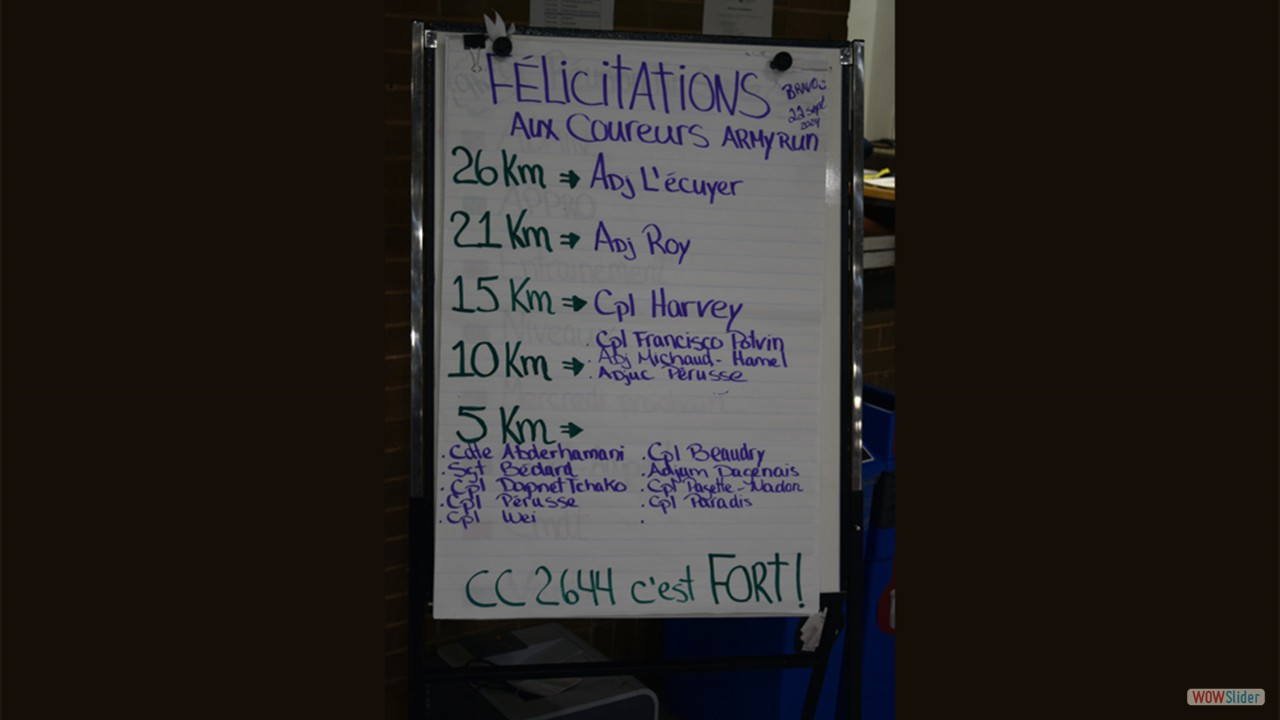 FÉLICITATIONS
BRAVO
22 Sept
2024
Aux Coureurs ARMY RUN
26 Km → Adj L'écuyer
21 Km → Adj Roy
15 Km → Cpl Harvey
10 Km →
. Cpl Francisco Potvin
. Adj Michaud-Hamel
. Adjuc Pérusse
5 Km →
. Cdte Abderhamani
. Sgt Bédard
. Cpl Dapnet Tchako
. Cpl Pérusse
. Cpl Wei
. Cpl Beaudry
. Adjum Dagenais
. Cpl Payette-Nadon
. Cpl Paradis
.
CC 2644 c'est FORT!
WOWSlider